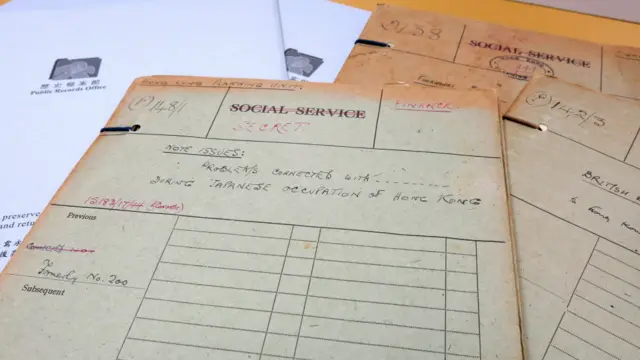 歷史檔案館
Public Records Office
preserve
and retu
2138
SOCIAL SERVICE
HONG KONG PLANNING UNIT
(P) 148/1
SOCIAL SERVICE
SECRET
FINANCE
NOTE ISSUES:
PROBLEMS CONNECTED WITH
DURING JAPANESE OCCUPATION OF HONG KONG
Previous
Formerly No. 200
Subsequent
(P) 142/3
BRITISH